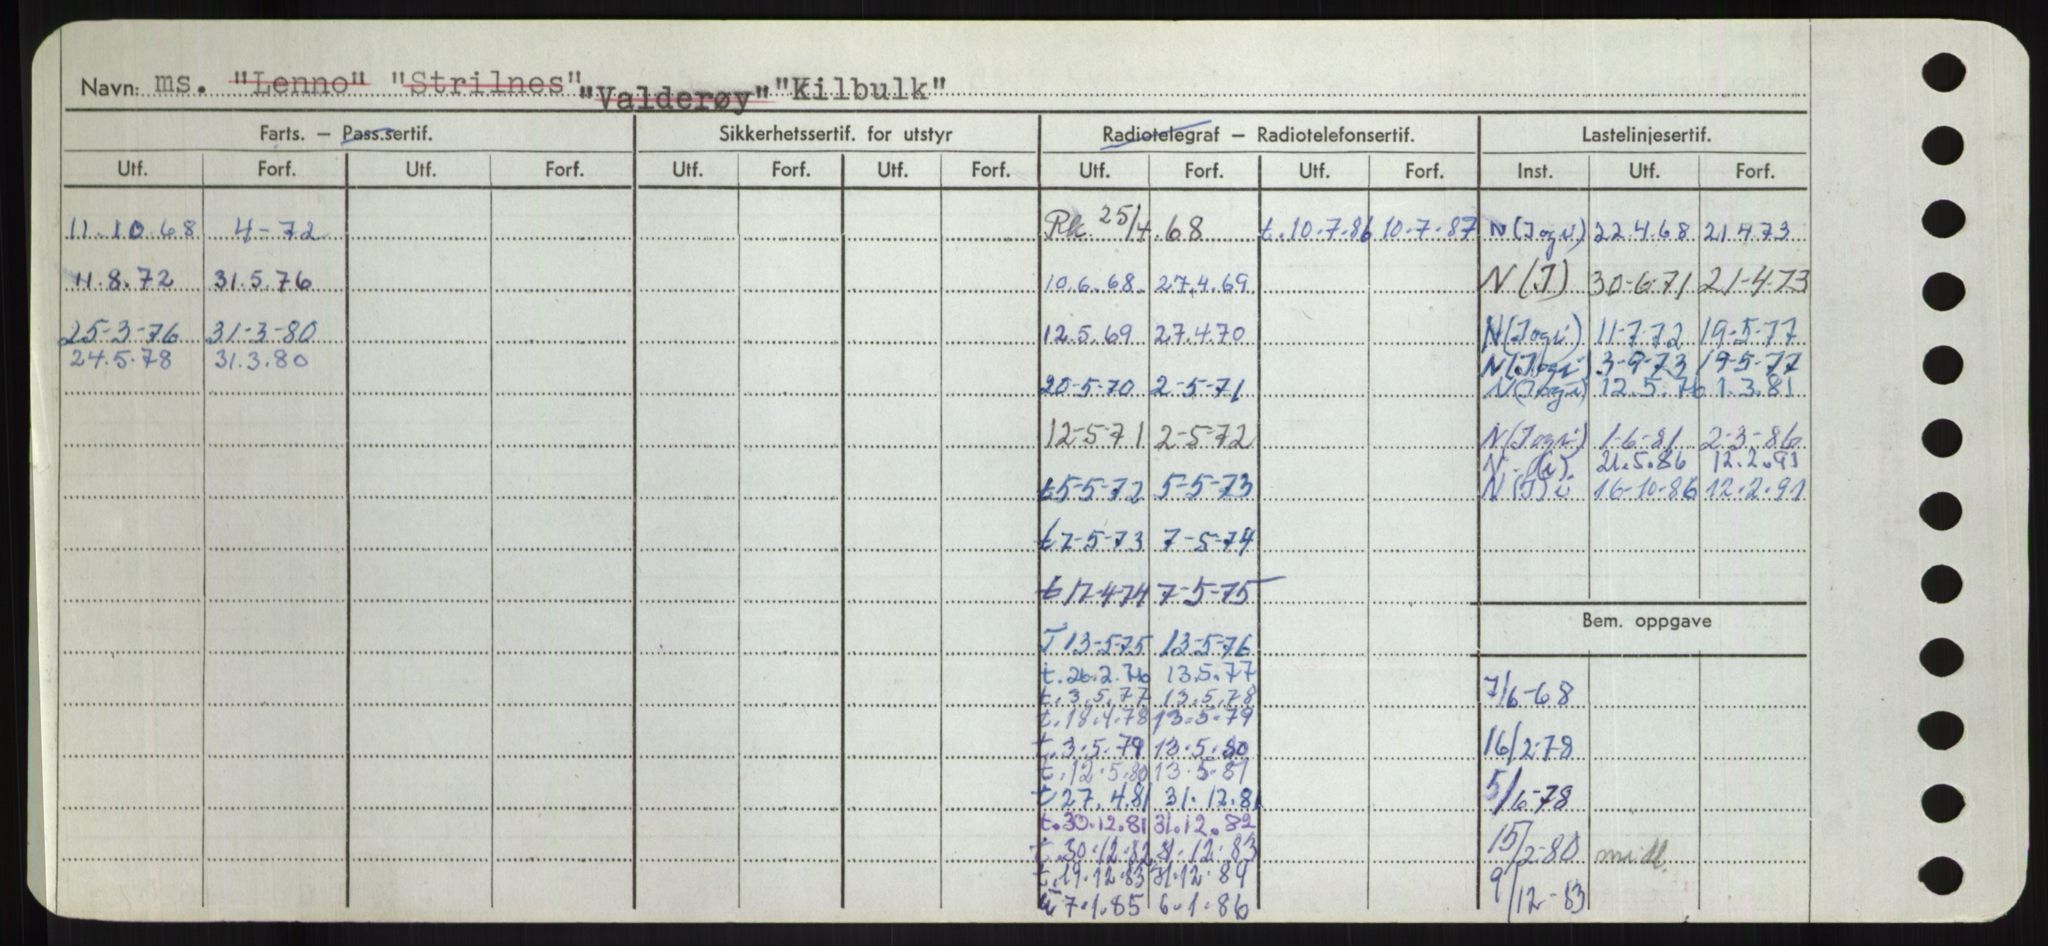 Navn: ms. "Lenno" "Strilnes" "Valderøy" "Kilbulk"
Farts. — Pass.sertif. Sikkerhetssertif. for utstyr Radiotelegraf — Radiotelefonsertif. Lastelinjesertif.
Utf. Forf. Utf. Forf. Utf. Forf. Utf. Forf. Utf. Forf. Utf. Forf. Inst. Utf. Forf.
11.10.68 4-72 Rk 25/4.68 t.10.7.86 10.7.87 N(Togi) 22.4.68 21.4.73
11.8.72 31.5.76 10.6.68. 27.4.69 N(I) 30-6-71 21-4-73
25-3-76 31-3-80 12.5.69 27.4.70 N(Togi) 11-7-72 19-5-77
24.5.78 31.3.80 N(Togi) 3-9-73 19-5-77
20-5-70 2-5-71 N(Togi) 12.5.76 1.3.81
12-5-71 2-5-72 N(Togi) 1-6-81 2-3-86
N 21.5.86 12.2.91
t5-5-72 5-5-73 N(I) 16-10-86 12.2.91
t7-5-73 7-5-74
t17-4-74 7-5-75
Bem. oppgave
T 13-5-75 13-5-76
t.26.2.76 13.5.77
t.3.5.77 13.5.78 7/6-68
t.18.4.78 13-5-79
t.3.5.79 13.5.80 16/2-78
t.12.5.80 13.5.81
t 27.4.81 31.12.81 5/6-78
t.30.12.81 31.12.82
t.30.12.82 31.12.83 15/2-80 midl.
t.19.12.83 31.12.84
t 7.1.85 6.1.86 9/12-83